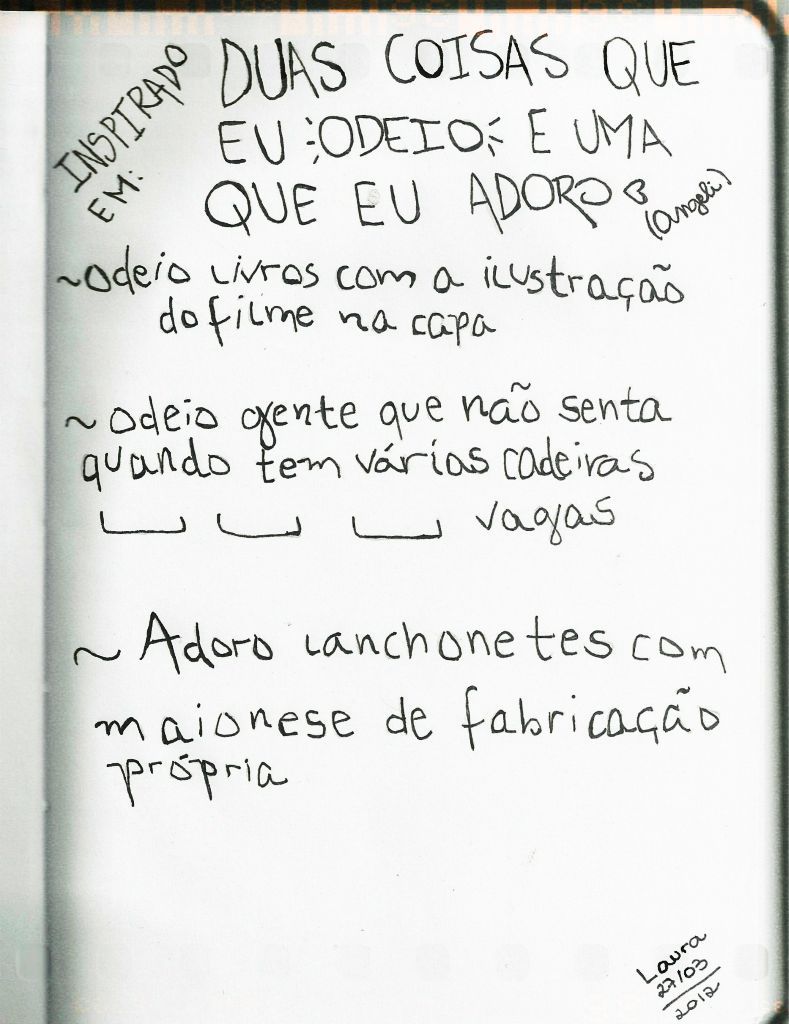 INSPIRADO
EM:
DUAS COISAS QUE
EU ODEIO E UMA
QUE EU ADORO
(Angeli)
~odeio livros com a ilustração
do filme na capa
~ odeio gente que não senta
quando tem várias cadeiras
vagas
~ Adoro lanchonetes com
maionese de fabricação
própria
Laura
27/03
2012